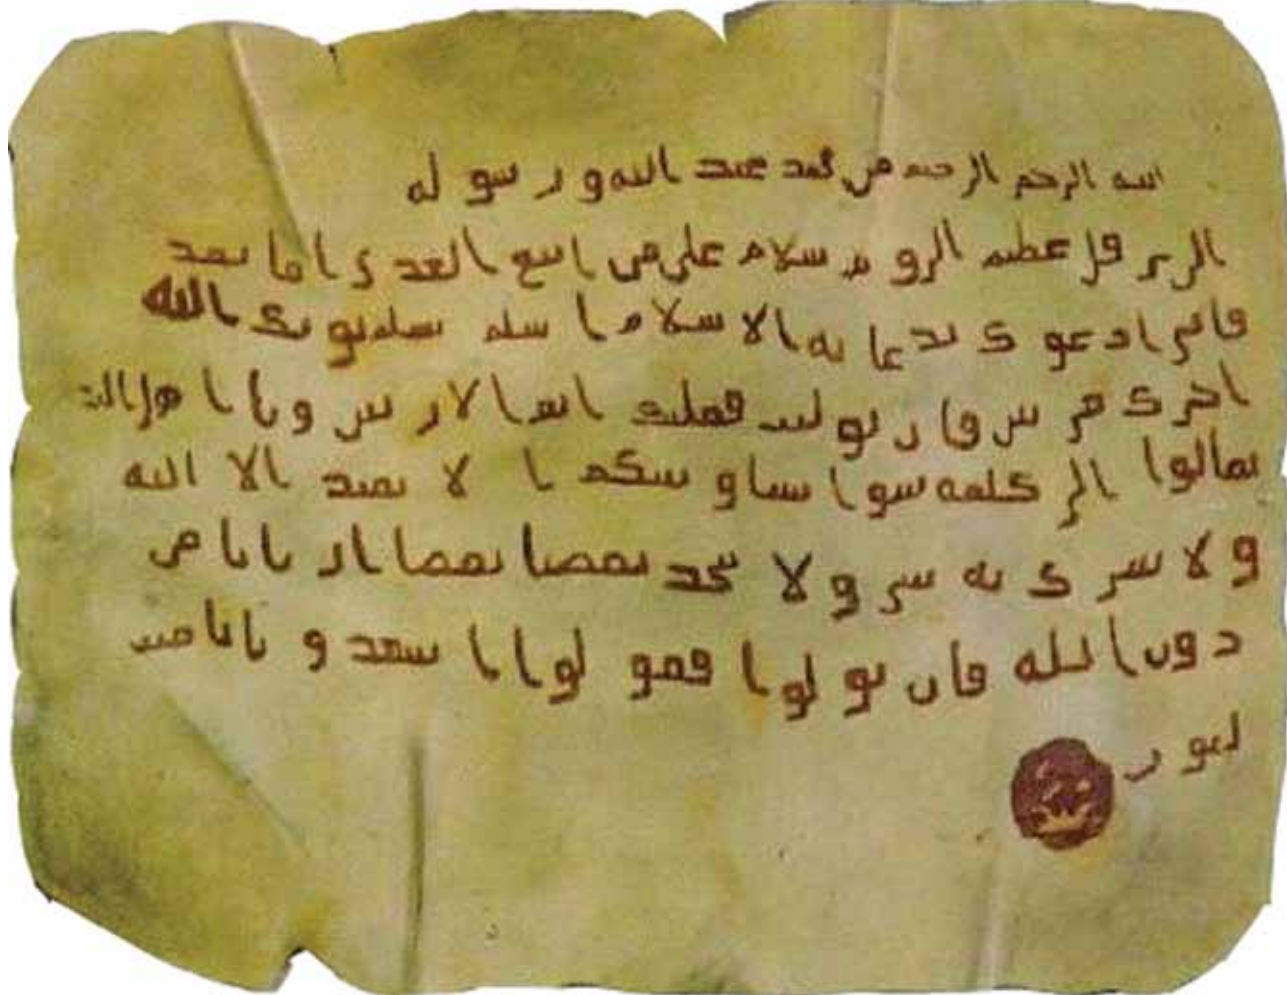 الله الرحمن الرحيم من محمد عبد الله و رسو له
الى هر قل عظيم الرو م سلام على من اتبع الهد ى ا ما بعد
فا نى ا د عو ك بد عا يه ا لا سلا م ا سلم تسلم يو تك ا لله
ا جر ك مر تين فا ن تو ليت فعليك ا ثم ا لا ر يسين و يا ا هل ا لكت
تعا لوا ا لى كلمه سو ا بيننا و بينكم ا لا نعبد ا لا ا لله
و لا نشر ك به شى و لا يتخذ بعضنا بعضا ا ر با با من
د و ن ا لله فا ن تو لو ا فقو لو ا ا شهد و ا با نا مسـ
لمو ن